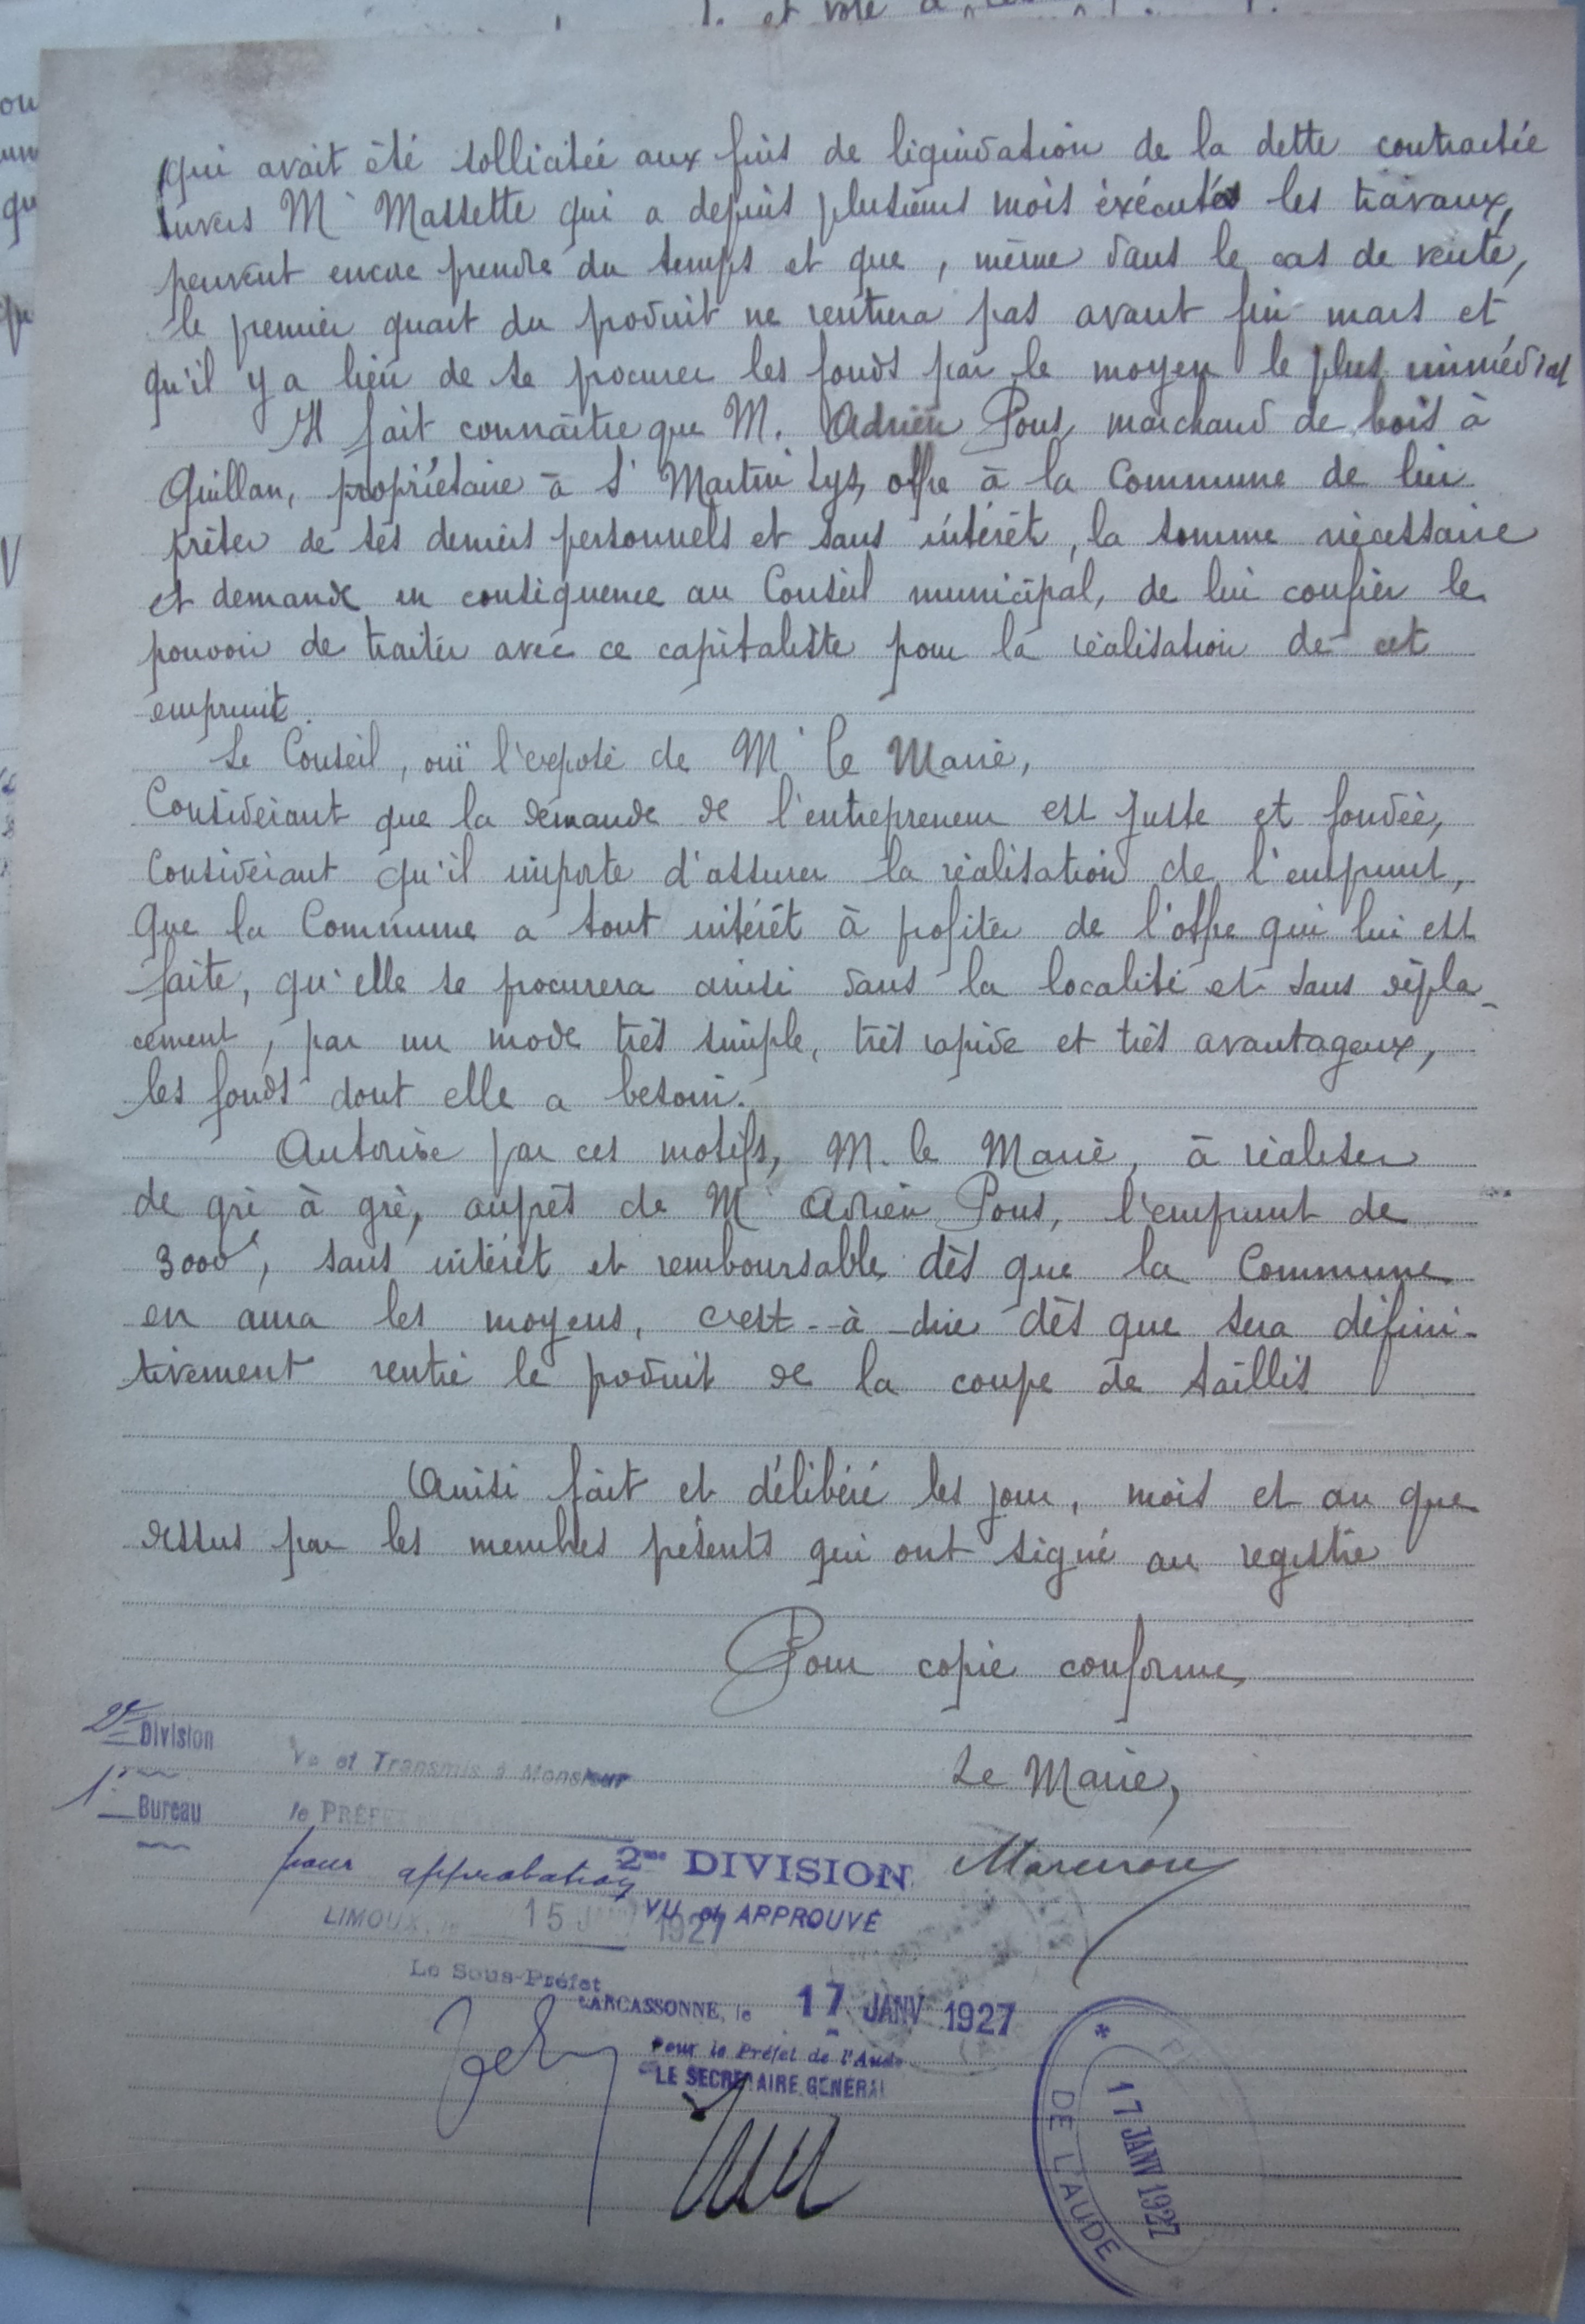 qui avait été sollicitée aux fins de liquidation de la dette contractée
envers Mr Massette qui a depuis plusieurs mois éxécutés les travaux,
peuvent encore prendre du temps et que, même dans le cas de vente,
le premier quart du produit ne rentrera pas avant fin mars et
qu'il y a lieu de se procurer les fonds par le moyen le plus immédiat
Il fait connaître que M. Adrien Pous, marchand de bois à
Quillan, propriétaire à St Martin Lys, offre à la Commune de lui
prêter de ses deniers personnels et sans intérêt, la somme nécessaire
et demande en conséquence au Conseil municipal, de lui confier le
pouvoir de traiter avec ce capitaliste pour la réalisation de cet
emprunt.
Le Conseil, ouï l'exposé de Mr le Maire,
Considérant que la demande de l'entrepreneur est juste et fondée,
Considérant qu'il importe d'assurer la réalisation de l'emprunt,
que la Commune a tout intérêt à profiter de l'offre qui lui est
faite, qu'elle se procurera ainsi dans la localité et sans dépla-
cement, par un mode très simple, très rapide et très avantageux,
les fonds dont elle a besoin.
Autorise par ces motifs, M. le Maire, à réaliser
de gré à gré, auprès de Mr Adrien Pous, l'emprunt de
3000f, sans intérêt et remboursable dès que la Commune
en aura les moyens, c'est-à-dire dès que sera défini-
tivement rentré le produit de la coupe de taillis
Ainsi fait et délibéré les jour, mois et an que
dessus par les membres présents qui ont signé au registre
Pour copie conforme,
Le Maire,
2e Division
1r Bureau
Vu et Transmis à Monsieur
le PRÉFET
pour approbation
LIMOUX, le 15 JANV 1927
Le Sous-Préfet
2me DIVISION
VU et APPROUVÉ
CARCASSONNE, le 17 JANV 1927
Pour le Préfet de l'Aude
LE SECRÉTAIRE GÉNÉRAL
17 JANV 1927
DE L'AUDE